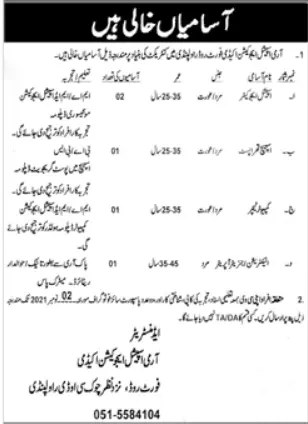 آسامیاں خالی ہیں
1۔ آرمی اسپیشل ایجوکیشن اکیڈمی فورٹ روڈ راولپنڈی میں کنٹریکٹ کی بنیاد پر مندرجہ ذیل آسامیاں خالی ہیں۔
نمبر شمار نام آسامی جنس عمر آسامیوں کی تعداد تعلیم/تجربہ
ا۔ اسپیشل ایجوکیٹر مرد/عورت 25-35 سال 02 ایم اے/ایم ایڈ اسپیشل ایجوکیشن
مونٹیسوری ڈپلومہ
تجربہ کار افراد کو ترجیح دی جائے گی
ب۔ اسپیچ تھراپسٹ مرد/عورت 25-35 سال 01 بی اے/بی ایس
اسپیچ میں پوسٹ گریجویٹ ڈپلومہ
تجربہ کار افراد کو ترجیح دی جائے گی
ج۔ کمپیوٹر ٹیچر مرد/عورت 25-35 سال 01 ایم اے/ایم ایڈ اسپیشل ایجوکیشن
کمپیوٹر ڈپلومہ ہولڈر کو ترجیح دی جائے
گی۔
د۔ الیکٹریشن/جنریٹر آپریٹر مرد 35-45 سال 01 پاک آرمی سے بطور نائیک/حوالدار
ریٹائرڈ۔ میٹرک پاس
2۔ متعلقہ افراد اپنی سی وی بمعہ تعلیمی اسناد، تجربہ کی کاپی، شناختی کارڈ اور دو عدد پاسپورٹ سائز فوٹوگراف مورخہ 02 نومبر 2021 تک مندرجہ
ذیل پتہ پر ارسال کریں۔ کسی قسم کا TA/DA نہیں دیا جائے گا۔
ایڈمنسٹریٹر
آرمی اسپیشل ایجوکیشن اکیڈمی
فورٹ روڈ، نزد نظر چوک سی او ڈی راولپنڈی
051-5584104